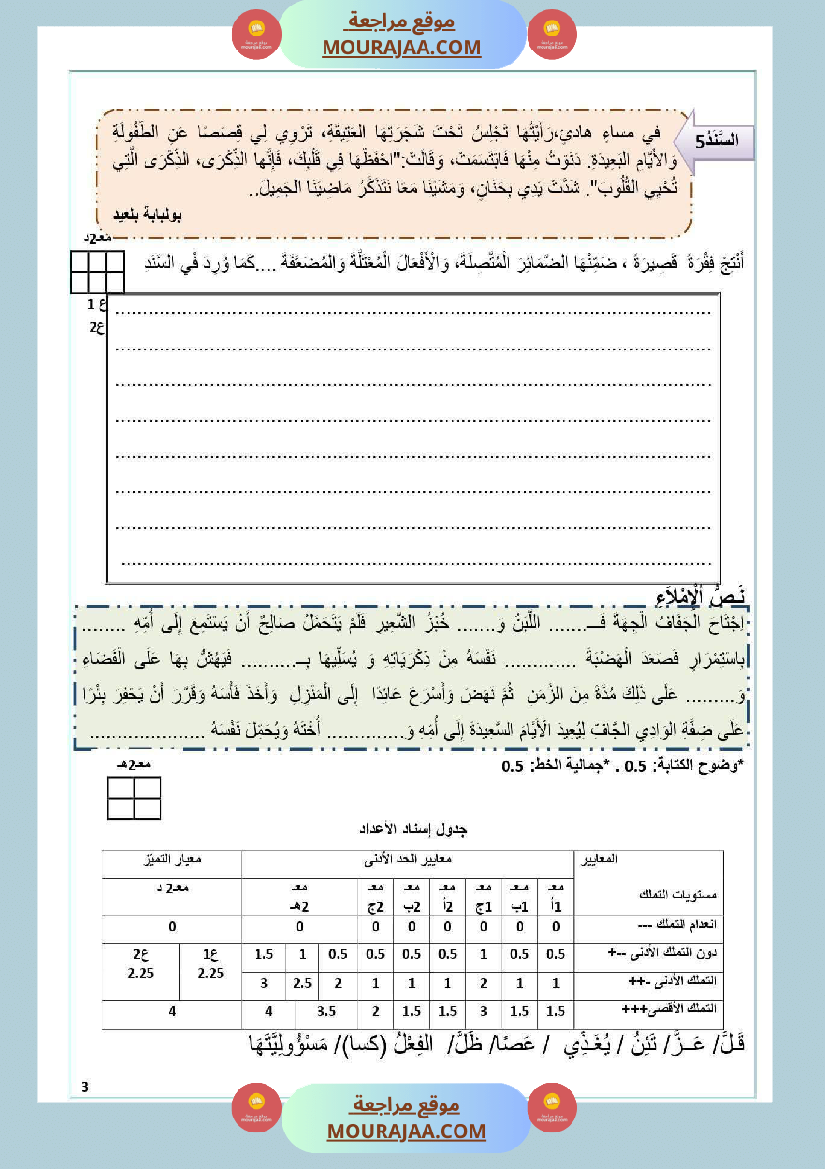 موقع مراجعة
MOURAJAA.COM
السَّنَدُ5
في مساءٍ هادئٍ،رَأَيْتُها تَجْلِسُ تَحْتَ شَجَرَتِهَا العَتِيقَةِ، تَرْوِي لِي قِصَصًا عَنِ الطُّفُولَةِ
وَالأَيَّامِ البَعِيدَةِ. دَنَوْتُ مِنْهَا فَابْتَسَمَتْ، وَقَالَتْ:"احْفَظْهَا فِي قَلْبِكَ، فَإِنَّها الذِّكْرَى، الذِّكْرَى الَّتِي
تُحْيِي القُلُوبَ". شَدَّتْ يَدِي بِحَنَانٍ، وَمَشَيْنَا مَعًا نَتَذَكَّرُ مَاضِيَنَا الجَمِيلَ..
بولبابة بلعيد
معـ2د
أُنْتِجُ فِقْرَةً قَصِيرَةً ، ضَمِّنْهَا الضَّمَائِرَ الْمُتَّصِلَةَ، وَالْأَفْعَالَ الْمُعْتَلَّةَ وَالمُضَعَّفَةَ ....كَمَا وُرِدَ فْي السَّنَدِ
ع 1
ع2
نَـصُّ اُلْإِمْلَاَءِ
اِجْتَاحَ الْجَفَافُ الْجِهَةَ فَـــ....... اللَّبَنُ وَ....... خُبْزُ الشَّعِيرِ فَلَمْ يَتَحَمَّلْ صَالِحٌ أَنْ يَسْتَمِعَ إِلَى أُمِّهِ ........
بِاسْتِمْرَارٍ فَصَعَدَ الْهَضْبَةَ ............ نَفْسَهُ مِنْ ذِكْرَيَاتِهِ وَ يُسَلِّيهَا بِــ.......... فَيَهُشُّ بِهَا عَلَى الْفَضَاءِ
وَ......... عَلَى ذَلِكَ مُدَّةً مِنَ الزَّمَنِ ثُمَّ نَهَضَ وَأَسْرَعَ عَائِدًا إِلَى الْمَنْزِلِ وَأَخَذَ فَأْسَهُ وَقَرَّرَ أَنْ يَحْفِرَ بِئْرًا
عَلَى ضِفَّةِ الوَادِي الجَّافّ لِيُعِيدَ الْأَيَّامَ السَّعِيدَةَ إِلَى أُمِّهِ وَ.............. أُخْتَهُ وَيُحَمِّلَ نَفْسَهُ .....................
*وضوح الكتابة: 0.5 . *جمالية الخط: 0.5
معـ2هـ
جدول إسناد الأعداد
المعايير معايير الحد الأدنى معيار التميّز
مستويات التملك معـ 1أ معـ 1ب معـ 1ج معـ 2أ معـ 2ب معـ 2ج معـ 2هـ معـ2 د
انعدام التملك --- 0 0 0 0 0 0 0 0
دون التملك الأدنى --+ 0.5 0.5 1 0.5 0.5 0.5 0.5 1 1.5 ع1 2.25 ع2 2.25
التملك الأدنى -++ 1 1 2 1 1 1 2 2.5 3
التملك الأقصى+++ 1.5 1.5 3 1.5 1.5 2 3.5 4 4
قَـلَّ/ عَــزَّ/ تَئِنُ / يُغَـذِّي / عَصًا/ ظَلَّ/ الفِعْلُ (كسا)/ مَسْؤُولِيَّتَهَا
3
موقع مراجعة
MOURAJAA.COM